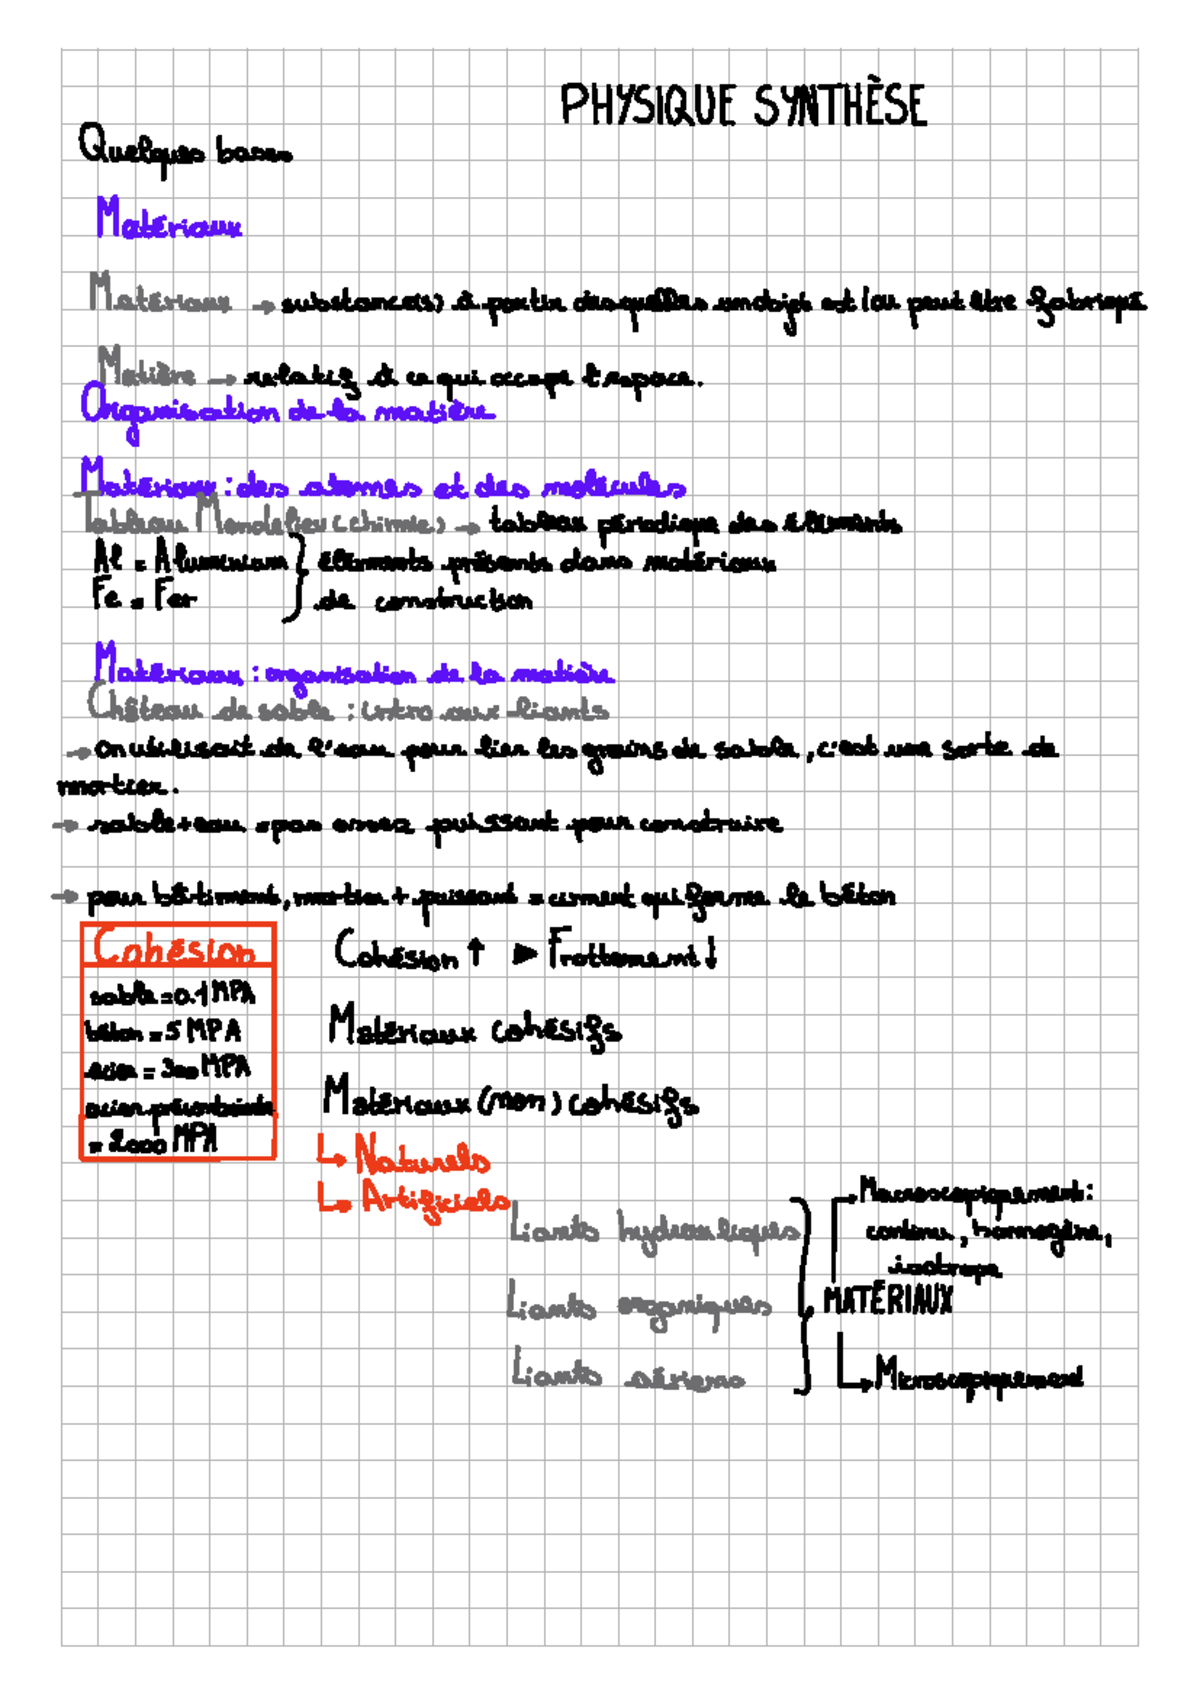 PHYSIQUE SYNTHÈSE
Quelques bases
Matériaux
Matériaux → substance(s) à partir desquelles un objet est/ou peut être fabriqué
Matière → relatif à ce qui occupe l'espace.
Organisation de la matière
Matériaux : des atomes et des molécules
Tableau Mendeliev (chimie) → tableau périodique des éléments
Al = Aluminium } éléments présents dans matériaux
Fe = Fer } de construction
Matériaux : organisation de la matière
Château de sable : intro aux liants
→ on utilisait de l'eau pour lier les grains de sable, c'est une sorte de
mortier.
→ sable + eau = pas assez puissant pour construire
→ pour bâtiment, mortier + puissant = ciment qui forme le béton
Cohésion
sable = 0.1 MPA
béton = 5 MPA
acier = 300 MPA
acier précontrainte
= 2000 MPA
Cohésion ↑ ► Frottement ↓
Matériaux cohésifs
Matériaux (non) cohésifs
↳ Naturels
↳ Artificiels
Liants hydrauliques
Liants organiques
Liants aériens
Macroscopiquement :
continu, homogène,
isotrope
MATÉRIAUX
↳ Microscopiquement